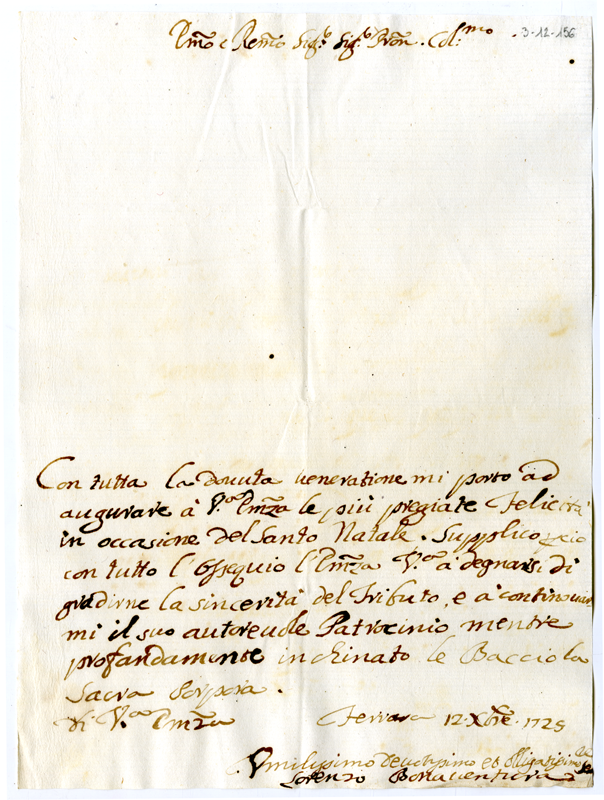 Emo e Remo Sig.r Sig.r Pron. Col.mo
3-12-156
Con tutta la douuta ueneratione mi porto ad
augurare à V.ra Emza le più pregiate Felicità
in occasione del Santo Natale. Supplico
con tutto l'Ossequio l'Emza V.ra à degnarsi di
gradirne la sincerità del Tributo, e à continuar
mi il suo autoreuole Patrocinio mentre
profondamente inchinato le Baccio la
Sacra Porpora.
Di V.ra Emza Ferrara 12 Xbre 1725
Vmilissimo Deuotissimo et Obligatissimo
Lorenzo Bonauentura